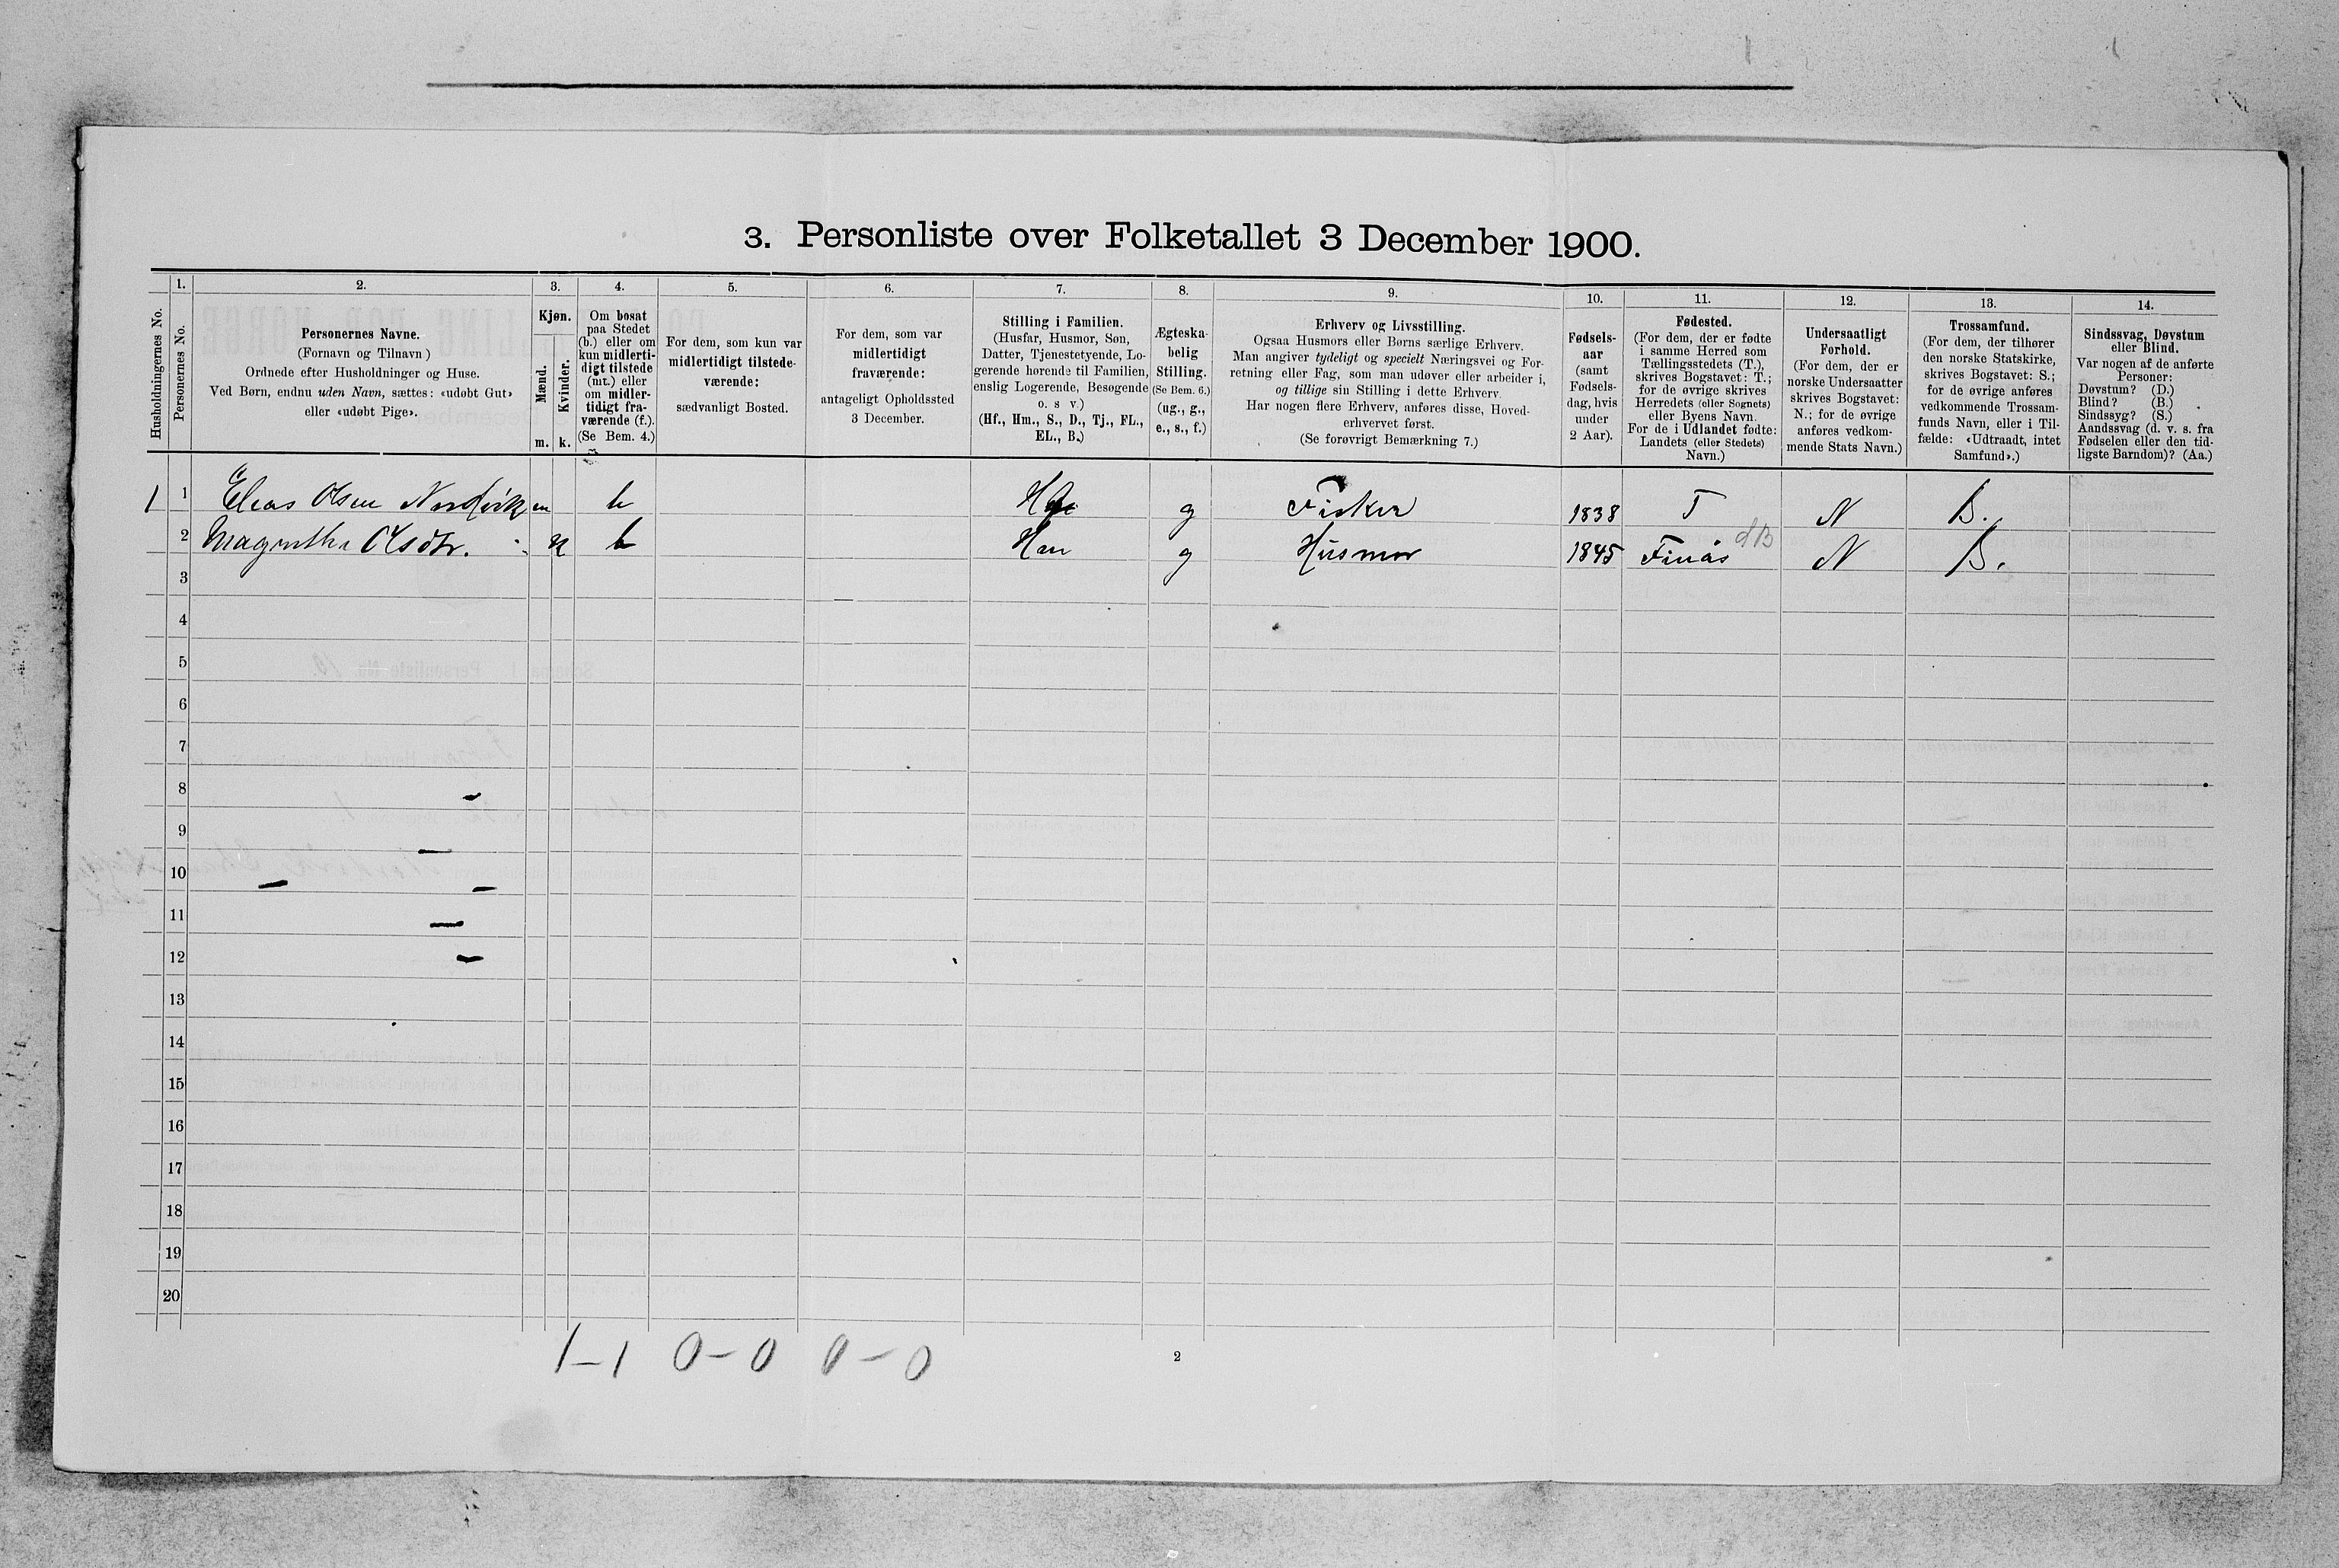 3. Personliste over Folketallet 3 December 1900.
Husholdningernes No.
1.
Personernes No.
2.
Personernes Navne.
(Fornavn og Tilnavn)
Ordnede efter Husholdninger og Huse.
Ved Børn, endnu uden Navn, sættes: «udøbt Gut»
eller «udøbt Pige».
3.
Kjøn.
Mænd.
m.
Kvinder.
k.
4.
Om bosat
paa Stedet
(b.) eller om
kun midlerti-
digt tilstede
(mt.) eller
om midler-
tidigt fra-
værende (f.).
(Se Bem. 4.)
5.
For dem, som kun var
midlertidigt tilstede-
værende:
sædvanligt Bosted.
6.
For dem, som var
midlertidigt
fraværende:
antageligt Opholdssted
3 December.
7.
Stilling i Familien.
(Husfar, Husmor, Søn,
Datter, Tjenestetyende, Lo-
gerende hørende til Familien,
enslig Logerende, Besøgende
o. s v.)
(Hf., Hm., S., D., Tj., FL.,
EL., B.)
8.
Ægteska-
belig
Stilling.
(Se Bem. 6.)
(ug., g.,
e., s., f.)
9.
Erhverv og Livsstilling.
Ogsaa Husmors eller Børns særlige Erhverv.
Man angiver tydeligt og specielt Næringsvei og For-
retning eller Fag, som man udøver eller arbeider i,
og tillige sin Stilling i dette Erhverv.
Har nogen flere Erhverv, anføres disse, Hoved-
erhvervet først.
(Se forøvrigt Bemærkning 7.)
10.
Fødsels-
aar
(samt
Fødsels-
dag, hvis
under
2 Aar).
11.
Fødested.
(For dem, der er fødte
i samme Herred som
Tællingsstedets (T.),
skrives Bogstavet: T.;
for de øvrige skrives
Herredets (eller Sognets)
eller Byens Navn.
For de i Udlandet fødte:
Landets (eller Stedets)
Navn.)
12.
Undersaatligt
Forhold.
(For dem, der er
norske Undersaatter
skrives Bogstavet:
N.; for de øvrige
anføres vedkom-
mende Stats Navn.)
13.
Trossamfund.
(For dem, der tilhører
den norske Statskirke,
skrives Bogstavet: S.;
for de øvrige anføres
vedkommende Trossam-
funds Navn, eller i Til-
fælde: «Udtraadt, intet
Samfund».)
14.
Sindssvag, Døvstum
eller Blind.
Var nogen af de anførte
Personer:
Døvstum? (D.)
Blind? (B.)
Sindssyg? (S.)
Aandssvag (d. v. s. fra
Fødselen eller den tid-
ligste Barndom)? (Aa.)
1 1 Elias Olsen m b g Fisker 1838 T N B.
2 Olsdtr. k b Hm g Husmor 1845 Finås N B.
3
4
5
6
7
8
9
10
11
12
13
14
15
16
17
18
19
20
1–1 0–0 0–0
2